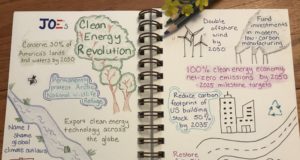 JOE's
Clean
Energy
Revolution
Conserve 30% of
America's lands
and waters by 2030
Permanently
protect Arctic
National Wildlife
Refuge
Name &
shame
global
climate outlaws
Export clean energy
technology across
the globe
Double
offshore
wind by
2030
Fund
investments
in modern,
low-carbon
manufacturing
100% clean energy economy,
net-zero emissions by 2050
- 2025 milestone targets
Reduce carbon
footprint of
US building
stock 50%
by 2035
Restore